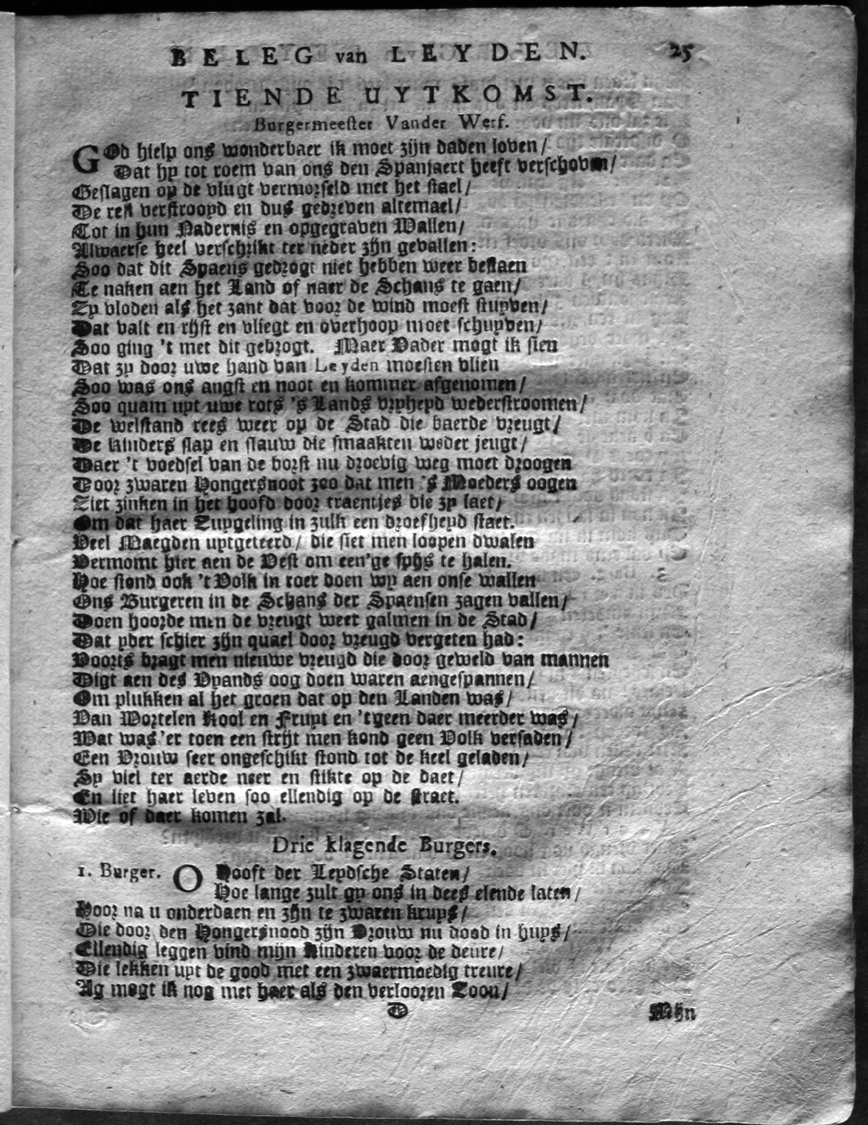 BELEG van LEYDEN. 25
TIENDE UYTKOMST.
Burgermeester Vander Werf.
GOd hielp ons wonderbaer ik moet zijn daden loven/
Dat hy tot roem van ons den Spanjaert heeft verschoven/
Geslagen op de vlugt vermorseld met het stael/
De rest verstroopd en dus gedreven altemael/
Tot in hun Nadernis en opgegraven Wallen/
Alwaerse heel verschrikt ter neder zijn gevallen:
Soo dat dit Spaens gedrogt niet hebben weer bestaen
Te naken aen het Land of naer de Schans te gaen/
Zy vloden als het zant dat voor de wind moest stuyven/
Dat valt en rijst en vliegt en overhoop moet schuyven/
Soo ging 't met dit gebrogt. Maer Vader mogt ik sien
Dat zy door uwe hand van Leyden moesten vlien
Soo was ons angst en noot en kommer afgenomen/
Soo quam uyt uwe rots 's Lands vryheyd wederstroomen/
De welstand rees weer op de Stad die baerde vreugt/
De kinders slap en flauw die smaakten weder jeugt/
Daer 't voedsel van de borst nu droevig weg moet droogen
Door zwaren Hongersnoot zoo dat men 's Moeders oogen
Ziet zinken in het hoofd door traentjes die zy laet/
Om dat haer Zuygeling in zulk een droefheyd staet.
Veel Maegden uytgeteerd/ die siet men loopen dwalen
Vermomt hier aen de Vest om een'ge spijs te halen.
Hoe stond ook 't Volk in roer doen wy aen onse wallen
Ons Burgeren in de Schans der Spaensen zagen vallen/
Doen hoorde men de vreugt weer galmen in de Stad/
Dat yder schier zijn quael door vreugd vergeten had:
Voorts bragt men nieuwe vreugd die door geweld van mannen
Digt aen des Vyands oog doen waren aengespannen/
Om plukken al het groen dat op den Landen was/
Van Wortelen Kool en Fruyt en 'tgeen daer meerder was/
Wat was 'er toen een strijt men kond geen Volk versaden/
Een Vrouw seer ongeschikt stond tot de keel geladen/
Sy viel ter aerde neer en stikte op de daet/
En liet haer leven soo ellendig op de straet.
Wie of daer komen zal.
Drie klagende Burgers.
1. Burger. O Hooft der Leydsche Staten/
Hoe lange zult gy ons in dees elende laten/
Hoor na u onderdaen en zijn te zwaren kruys/
Die door den Hongersnood zijn Vrouw nu dood in huys/
Ellendig leggen vind mijn Kinderen voor de deure/
Die lekken uyt de good met een zwaermoedig treure/
Ag mogt ik nog met haer als den verlooren Zoon/
D Mijn